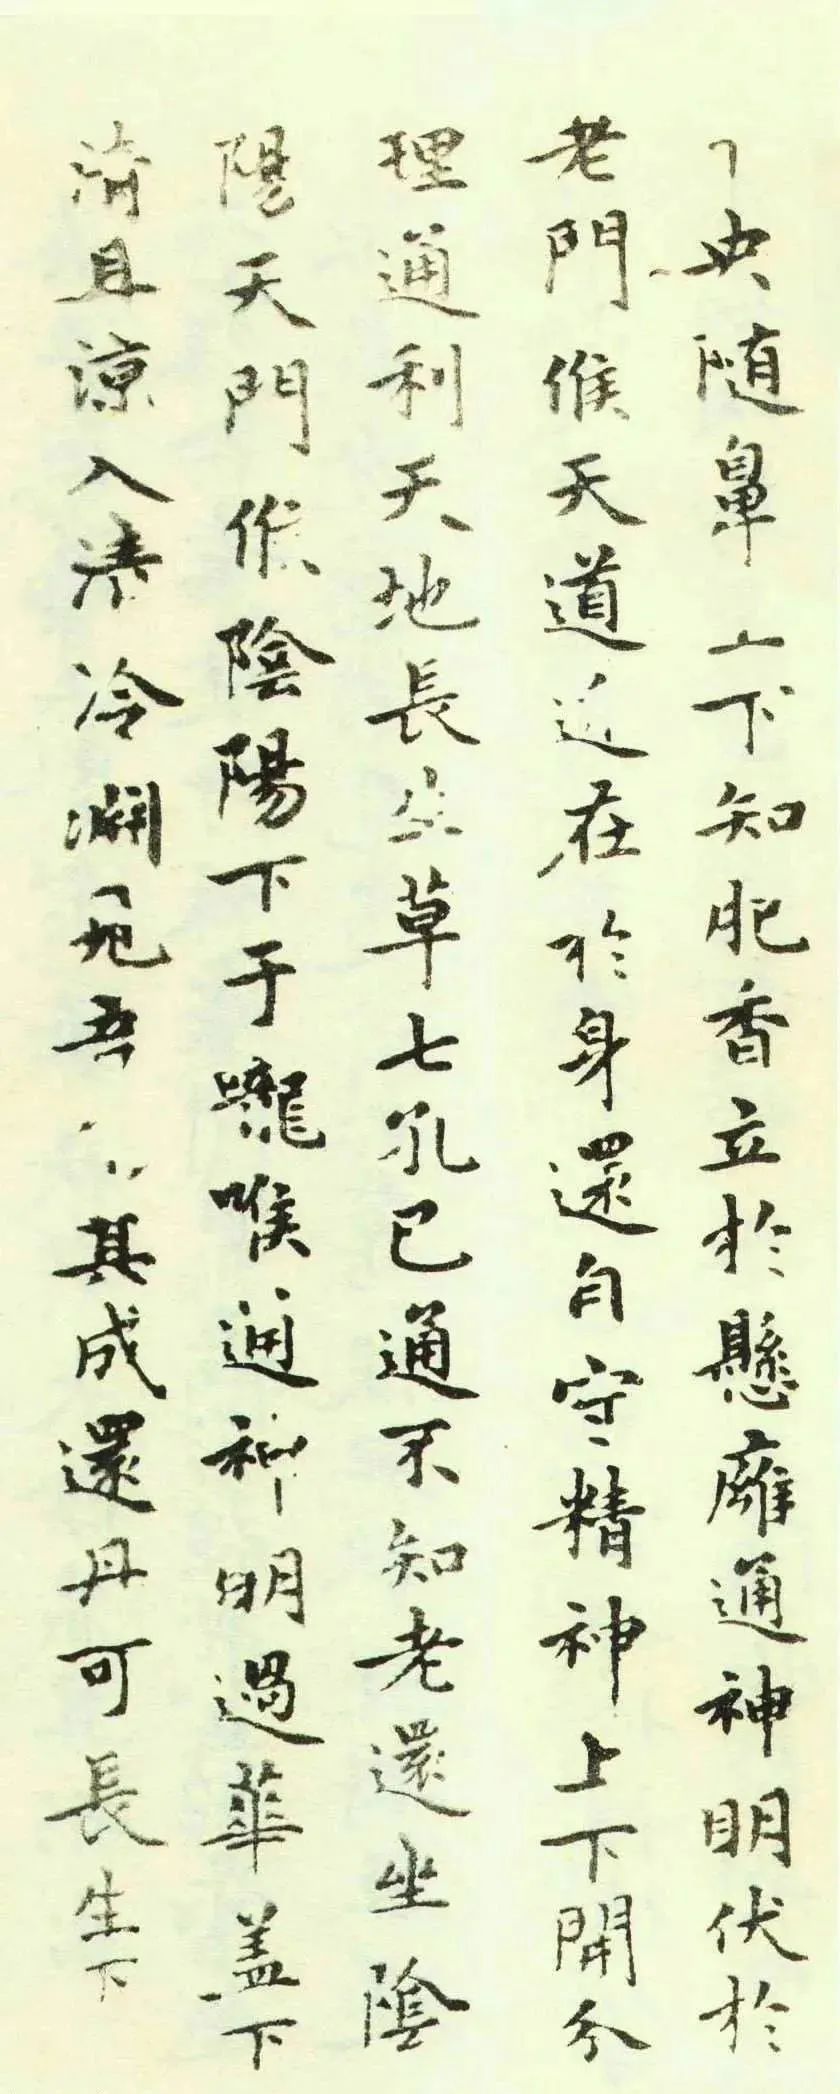 央随鼻上下知肥香立於懸癰通神明伏於
老門候天道近在於身還自守精神上下開分
理通利天地長生草七孔已通不知老還坐陰
陽天門候陰陽下于嚨喉通神明過華盖下
清且涼入清泠淵見吾其成還丹可長生下